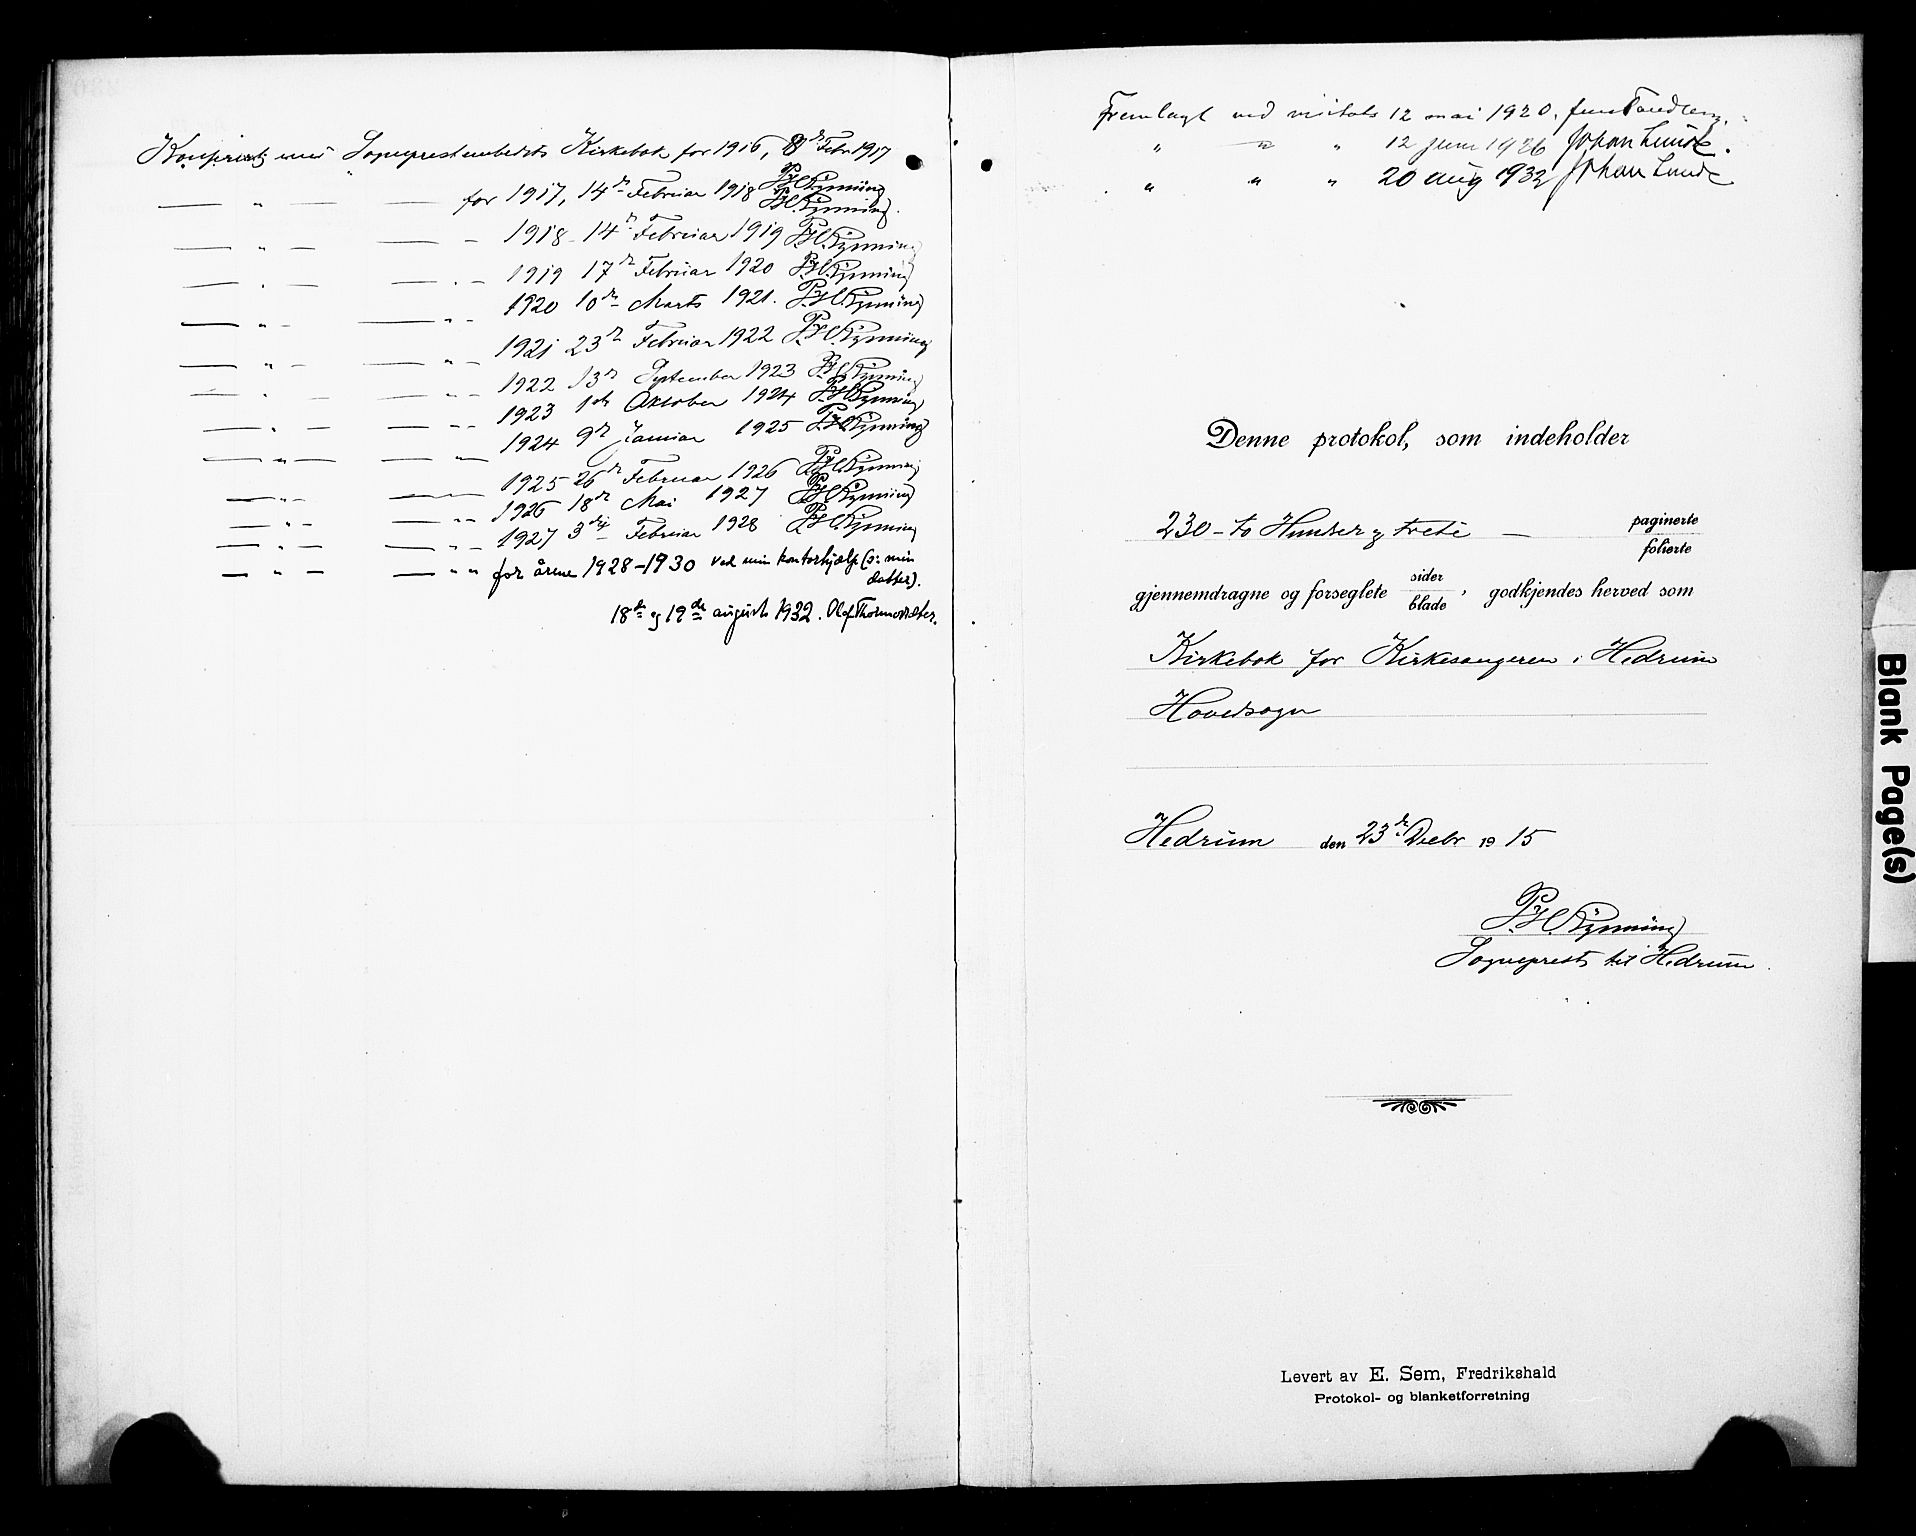 Konferert med Sogneprestembedets Kirkebok for 1916, 8de Febr 1917
P. H. Rynning
— " — — for 1917, 14de Februar 1918 P. H. Rynning.
— " — — - 1918 - 14de Februar 1919 P. H. Rynning
— " — — " - 1919 17de Februar 1920 P. H. Rynning
— " - — " - 1920 10de Marts 1921. P. H. Rynning
— " - — " - 1921 23de Februar 1922 P. H. Rynning
— " — — " - 1922 13de September 1923 P. H. Rynning
— " — — " - 1923 1ste Oktober 1924 P. H. Rynning
— " — — " - 1924 9de Januar 1925 P. H. Rynning
— " - — - 1925 26de Februar 1926 P. H. Rynning
— " - — " - 1926 18de Mai 1927 P. H. Rynning
— " — — " - 1927 3die Februar 1928 P. H. Rynning
— " — — " " for årene 1928-1930 ved min kontorhjælp (ɔ: min
datter).
18de og 19de august 1932. Olaf
Fremlagt ved visitats 12 mai 1920. Jens Tandberg.
" " " 12 juni 1926 Johan Lunde.
" " " 20 aug 1932 Johan Lunde
Denne protokol, som indeholder
230 - to Hundre og treti — paginerte
folierte
gjennemdragne og forseglete sider
blade, godkjendes herved som
Kirkebok for Kirkesangeren i Hedrum
Hovedsogn
Hedrum den 23de Decbr 1915
P. H. Rynning
Sogneprest til Hedrum.
Levert av E. Sem, Fredrikshald
Protokol- og blanketforretning
Blank Page(s)